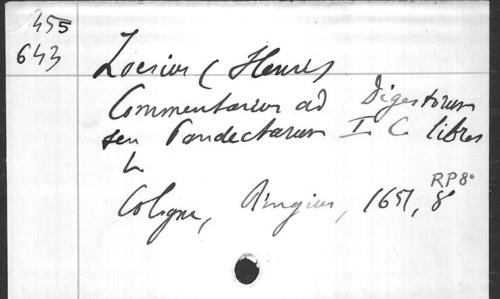 455
643
Zoesius (Henri)
Commentarius ad Digestorum
seu Pandectarum I. C. libros
L
Cologne, 1651, 8
RP8°